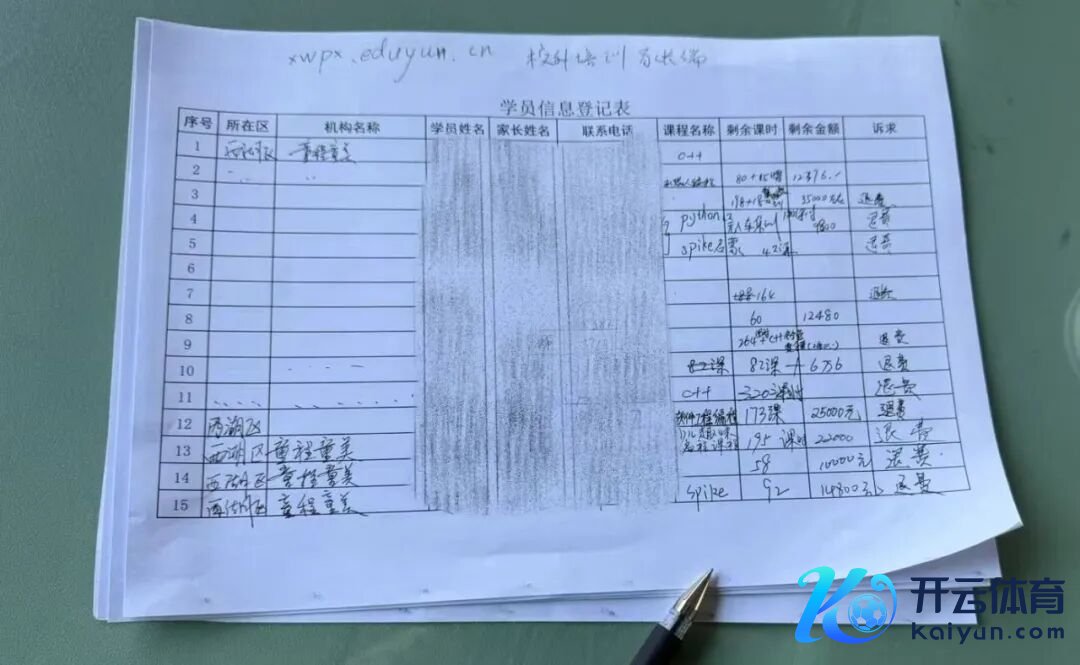 xwpx.eduyun.cn 校外培训家长端
学员信息登记表
序号 所在区 机构名称 学员姓名 家长姓名 联系电话 课程名称 剩余课时 剩余金额 诉求
1 西湖区 童程童美 C++
2 80+15
3 35000 退费
4 python 9800 退费
5 spike启蒙 42课 退费
6
7 164 退费
8 60 12480
9 264 退费
10 82课 82课 6万6 退费
11 C++ 320课时 退费
12 西湖区 173课 25000元 退费
13 西湖区 童程童美 195课时 22000 退费
14 西湖区 童程童美 58 10000元 退费
15 西湖区 童程童美 spike 92 14800元 退费
开云体育
kaiyun.com